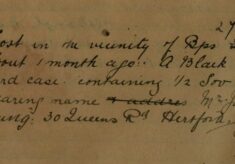 27
ost in the vicinity of Bps
bout 1 month ago. A Black
rd case containing 1/2 Sov
earing name ~~& addres~~ Mr J
ung: 30 Queens Rd Hertford